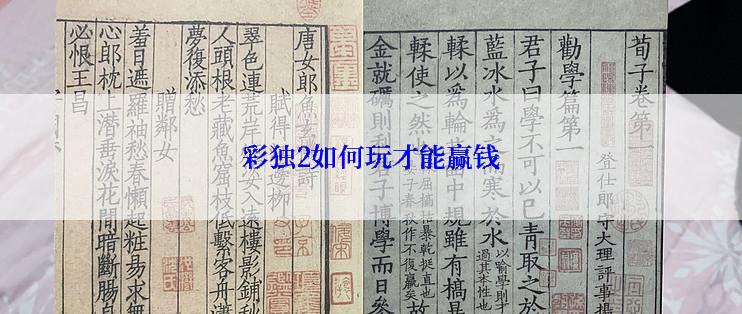 彩独2如何玩才能赢钱
荀子卷第一
登仕郎守大理評事楊
勸學篇第一
君子曰學不可以已青取之於
藍冰水為之而寒於水
以喻學則才
過其本性也
輮以為輪其曲中規雖有槁暴
輮使之然
故
金就礪則利君子博學而日參
唐女郎魚玄機詩
賦得江邊柳
翠色連荒岸 女入遠樓影鋪秋
人頭根老藏魚窟枝低繫客舟瀟
夢復添愁
贈鄰女
羞日遮羅袖愁春懶起粧易求無
心郎枕上潛垂淚花間暗斷腸自
必恨王昌